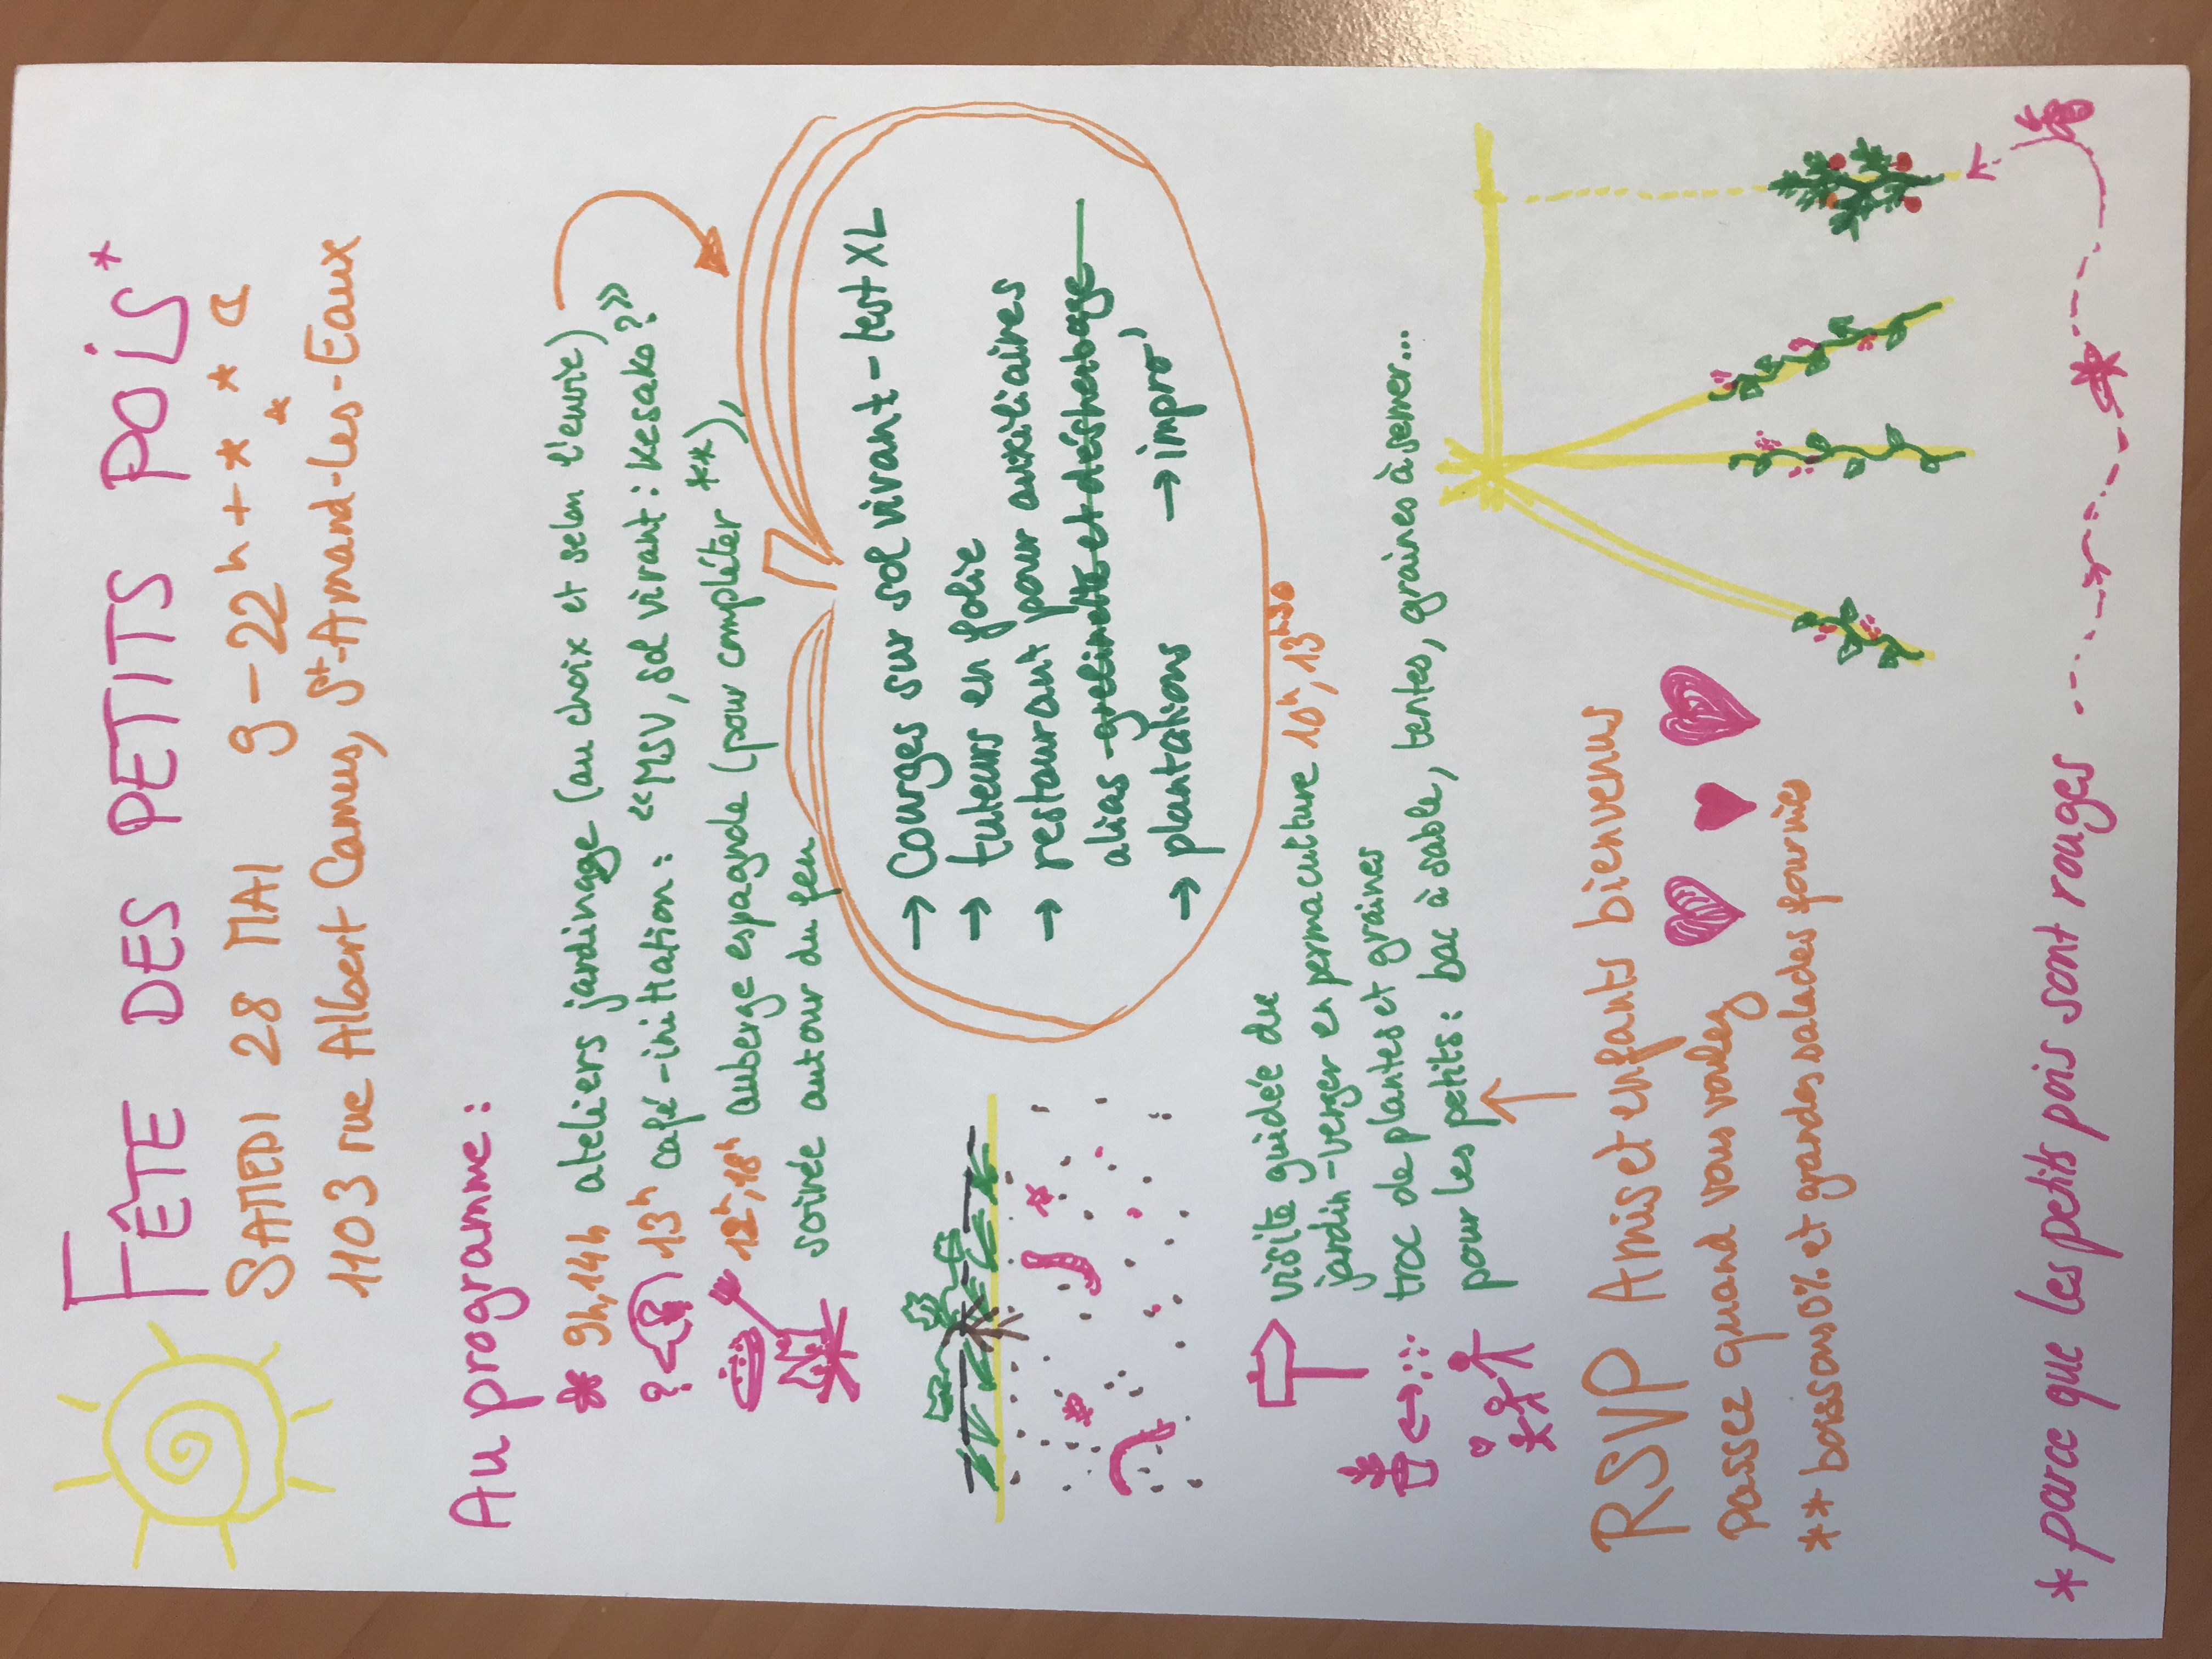 FÊTE DES PETITS POIS*
SAMEDI 28 MAI 9-22h + **
1103 rue Albert Camus, St-Amand-Les-Eaux
Au programme:
* 9h,14h ateliers jardingage (au choix et selon l'envie)
? 13h café-initiation: «MSV, sol vivant: kesako?»
12h,18h auberge espagnole (pour compléter **),
soirée autour du feu
→ Courges sur sol vivant - test XL
→ tuteurs en folie
→ restaurant pour auxiliaires
alias grelinette et désherbage
→ plantations → impro'
visite guidée du
jardin-verger en permaculture 10h, 13h30
troc de plantes et graines
pour les petits: bac à sable, tentes, graines à semer...
RSVP Amis et enfants bienvenus
passez quand vous voulez
** boissons 0% et grandes salades fournies
* parce que les petits pois sont rouges